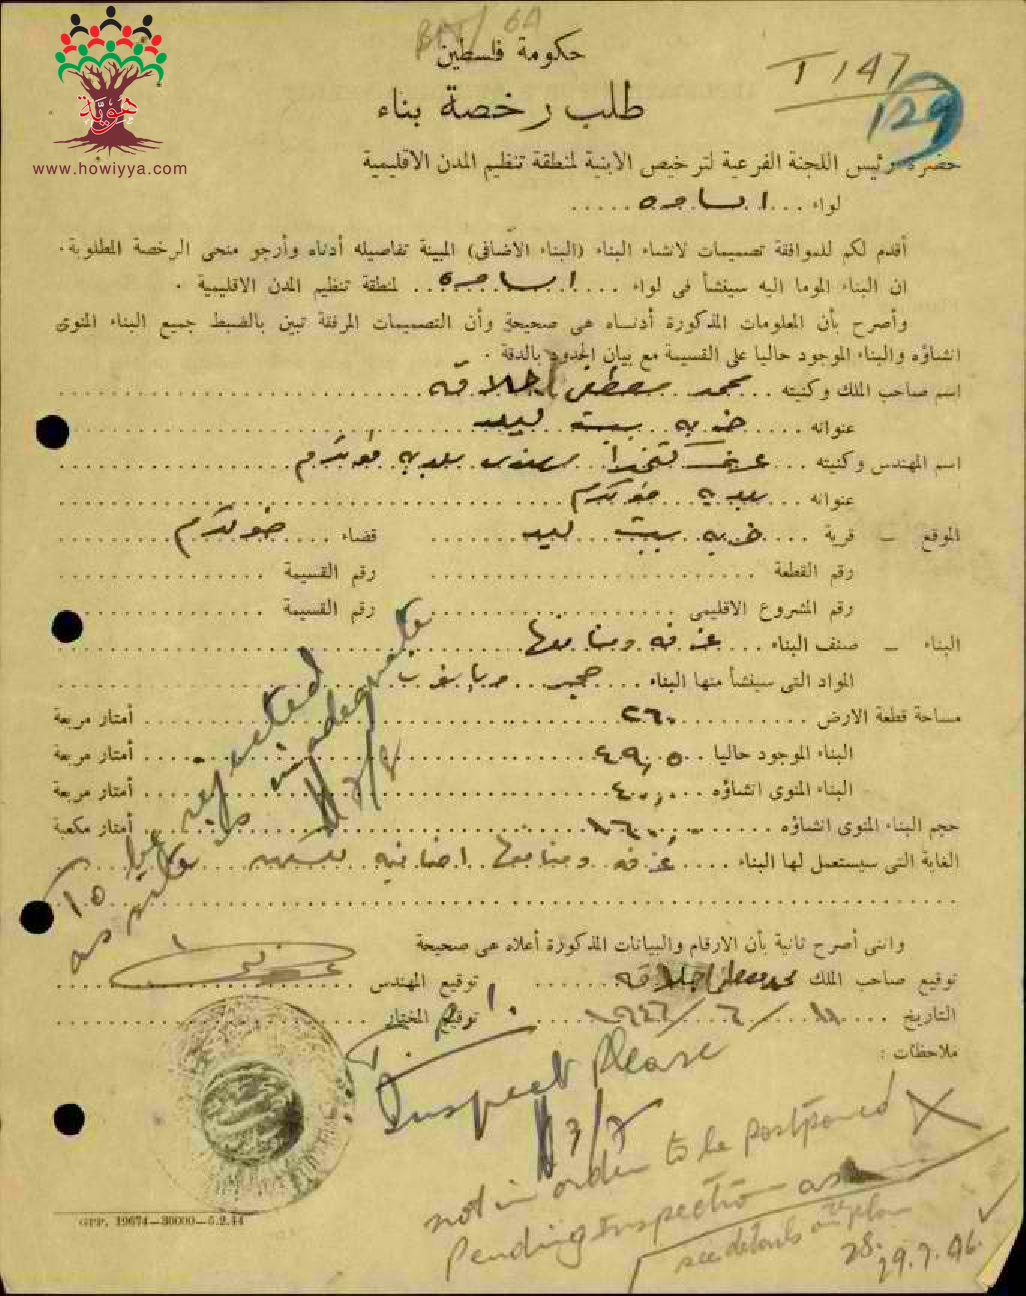 BM/6A
هوية
www.howiyya.com
T/147
129
حكومة فلسطين
طلب رخصة بناء
حضرة رئيس اللجنة الفرعية لترخيص الابنية لمنطقة تنظيم المدن الاقليمية
لواء ... السامره
أقدم لكم للموافقة تصميمات لانشاء البناء (البناء الأضافى) المبينة تفاصيله أدناه وأرجو منحى الرخصة المطلوبة.
ان البناء الموما اليه سينشأ فى لواء ... السامره ... لمنطقة تنظيم المدن الاقليمية .
وأصرح بأن المعلومات المذكورة أدناه هى صحيحة وأن التصميمات المرفقة تبين بالضبط جميع البناء المنوى
انشاؤه والبناء الموجود حاليا على القسيمة مع بيان الحدود بالدقة .
اسم صاحب الملك وكنيته ... محمد مصطفى اجلاقه
عنوانه ... خربه بيت ليد
اسم المهندس وكنيته ... مهندس بلدية طولكرم
عنوانه ... بلدية طولكرم
الموقع - قرية ... خربه بيت ليد ... قضاء ... طولكرم
رقم القطعة ... رقم القسيمة
رقم المشروع الاقليمى ... رقم القسيمة
البناء - صنف البناء ... غرفه ومنافعها
المواد التى سينشأ منها البناء ... حجر وباطون
مساحة قطعة الارض ... ٢٦٠ ... أمتار مربعة
البناء الموجود حاليا ... ٤٩,٥ ... أمتار مربعة
البناء المنوى انشاؤه ... ٤٠,٠٠ ... أمتار مربعة
حجم البناء المنوى انشاؤه ... ١٦٠,٠٠ ... أمتار مكعبة
الغاية التى سيستعمل لها البناء ... غرفه ومنافعها اضافيه للسكن
To be rejected
as site is inadequate
وانى أصرح ثانية بأن الارقام والبيانات المذكورة أعلاه هى صحيحة
توقيع صاحب الملك محمد مصطفى اجلاقه ... توقيع المهندس
التاريخ ... ١١/٦/١٩٤٦ ... توقيع المختار
ملاحظات :
Inspect Please
3/7
not in order to be postponed
Pending inspection as
see details on plan
28.
29.7.46.
GPP. 19674—30000—5.2.44